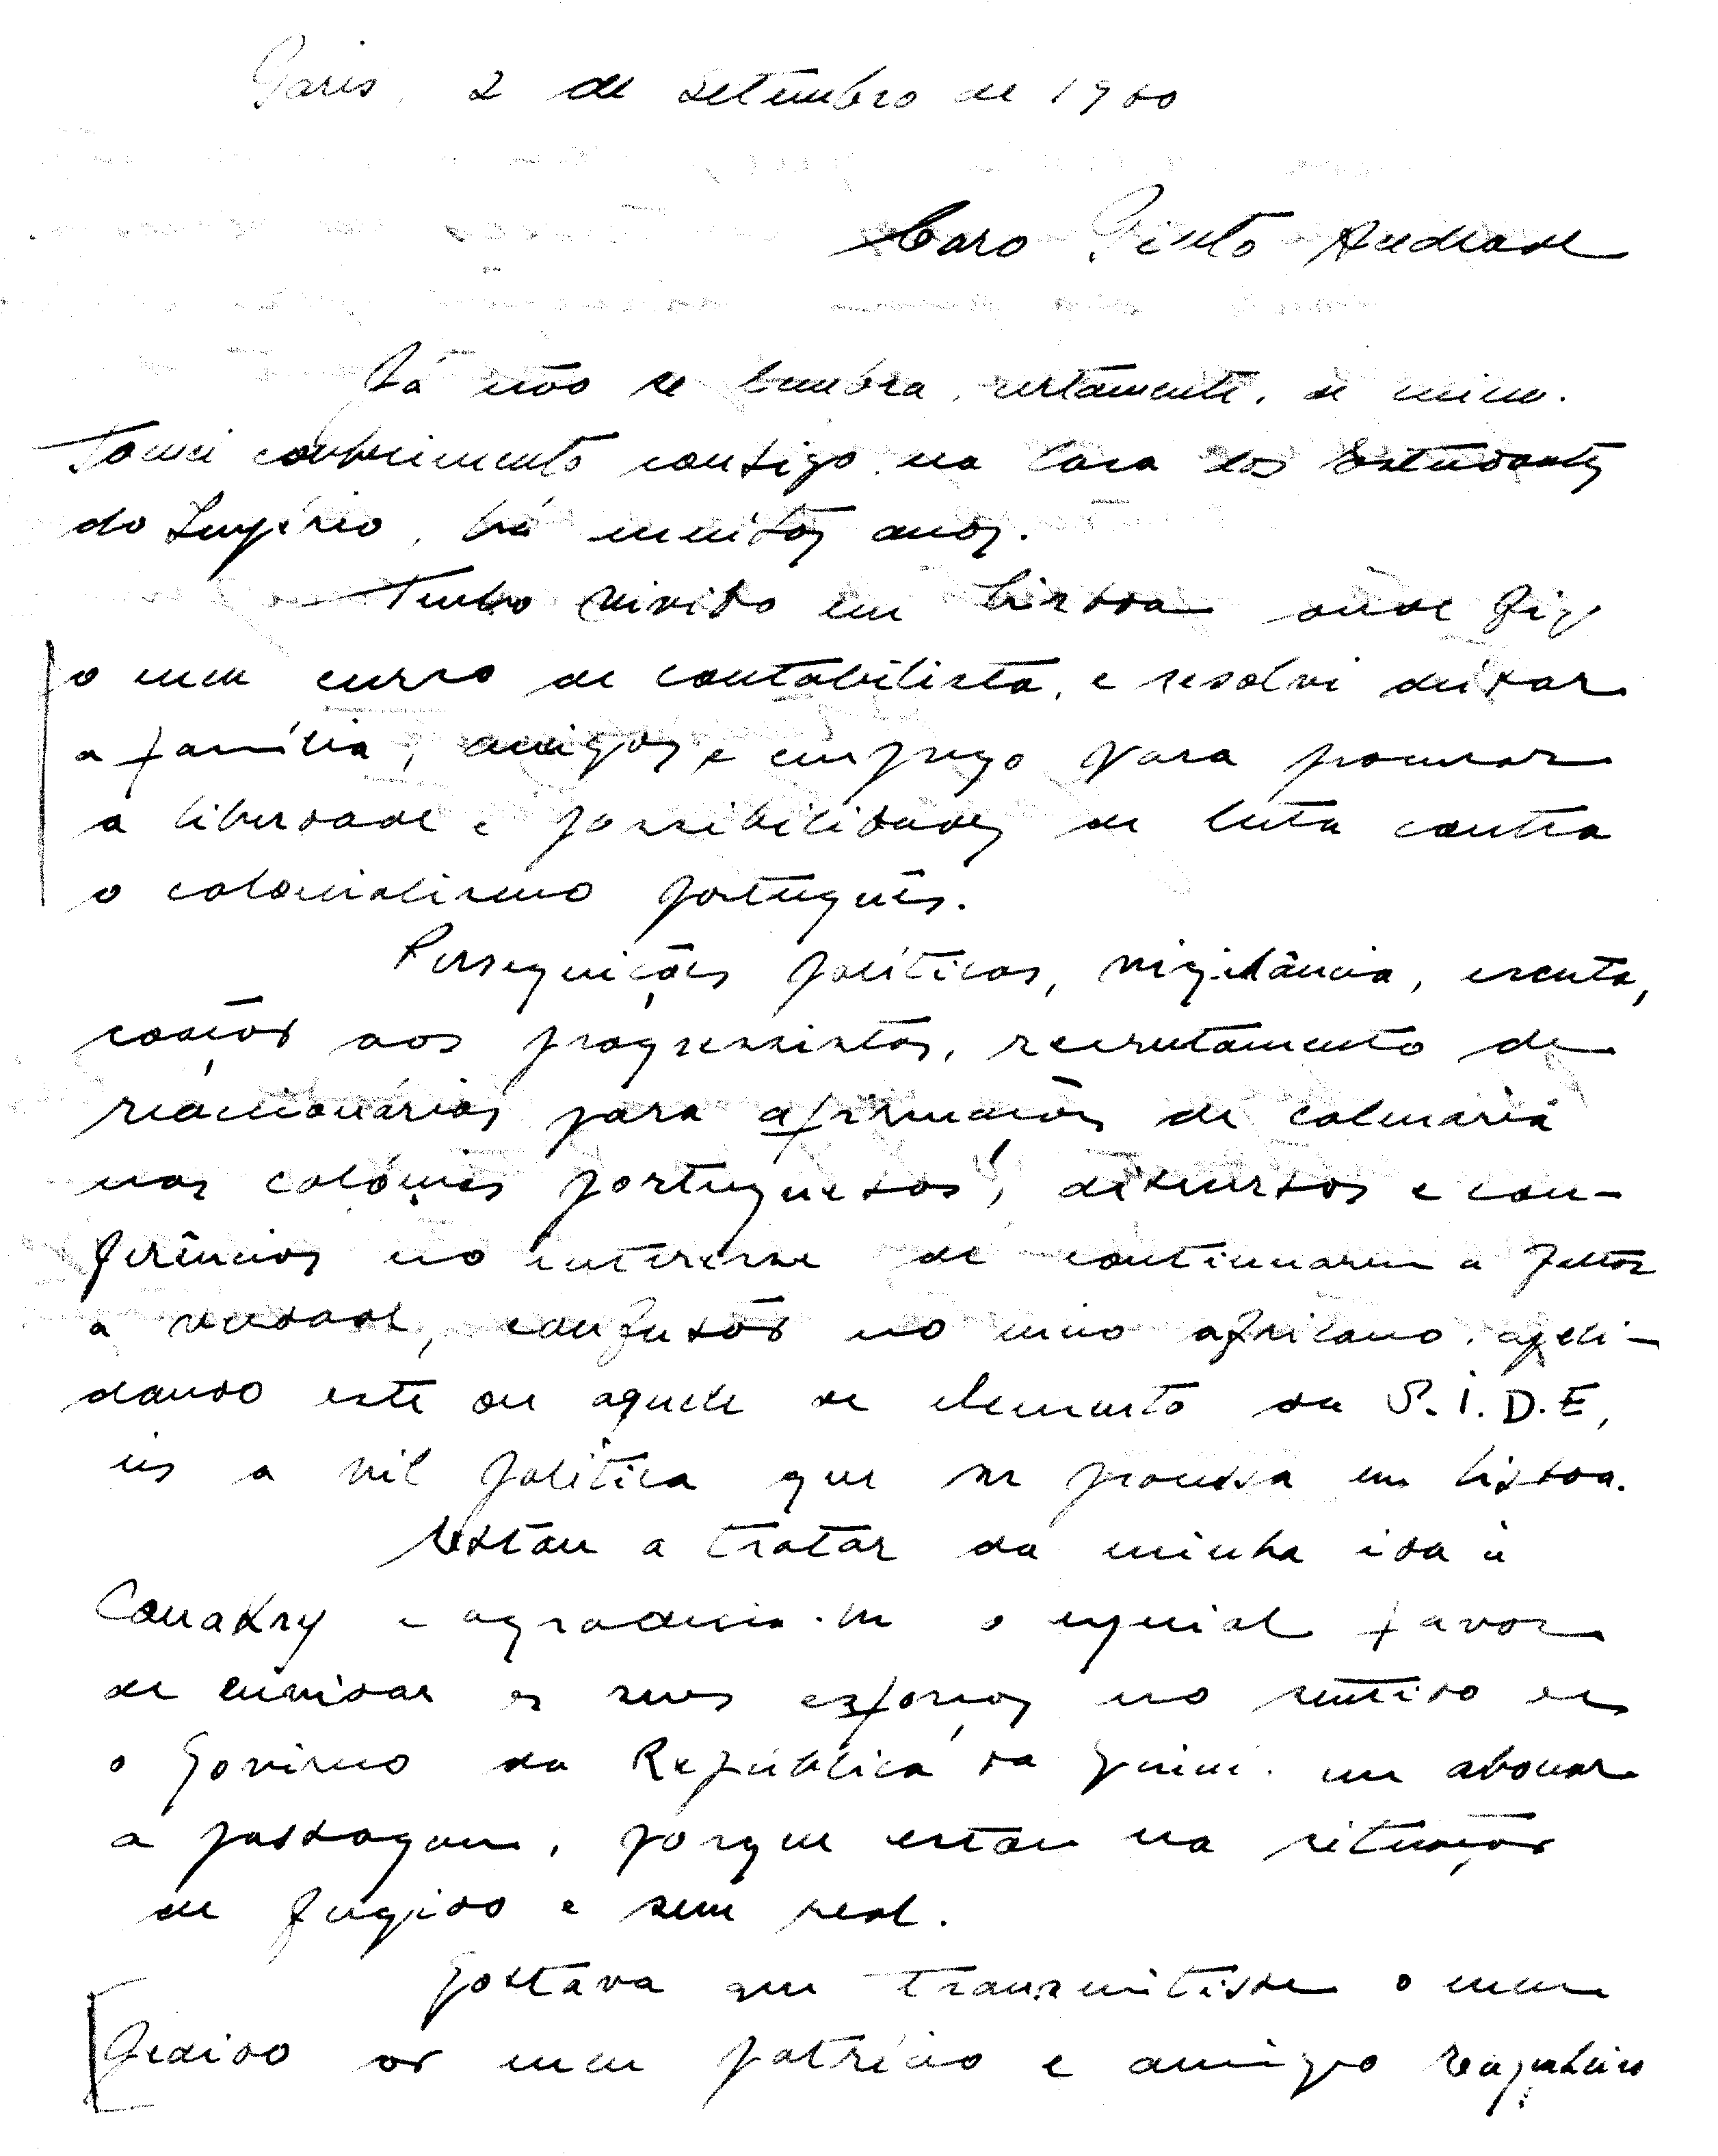 Paris, 2 de Setembro de 1960
Caro Pinto Andrade
Já não se lembra, certamente, de mim.
Tomei conhecimento consigo na Casa dos Estudantes
do Império, há muitos anos.
Tenho vivido em Lisboa onde fiz
o meu curso de contabilista, e resolvi deixar
a família, amigos e emprego para procurar
a liberdade e possibilidades de luta contra
o colonialismo português.
Perseguições políticas, vigilância, escuta,
coação aos progressistas, recrutamento de
reaccionários para afirmações de calmaria
nas colónias portuguesas, discursos e con-
ferências no interesse de continuarem a
a verdade, confusão no meio africano, apeli-
dando este ou aquele de elemento da P.I.D.E,
eis a vil política que se processa em Lisboa.
Estou a tratar da minha ida à
Conakry e agradecia-lhe o especial favor
de envidar os seus esforços no sentido de
o Govêrno da República da Guiné me abonar
a passagem, porque estou na situação
de fugido e sem real.
Gostava que transmitisse o meu
pedido ao meu patrício e amigo